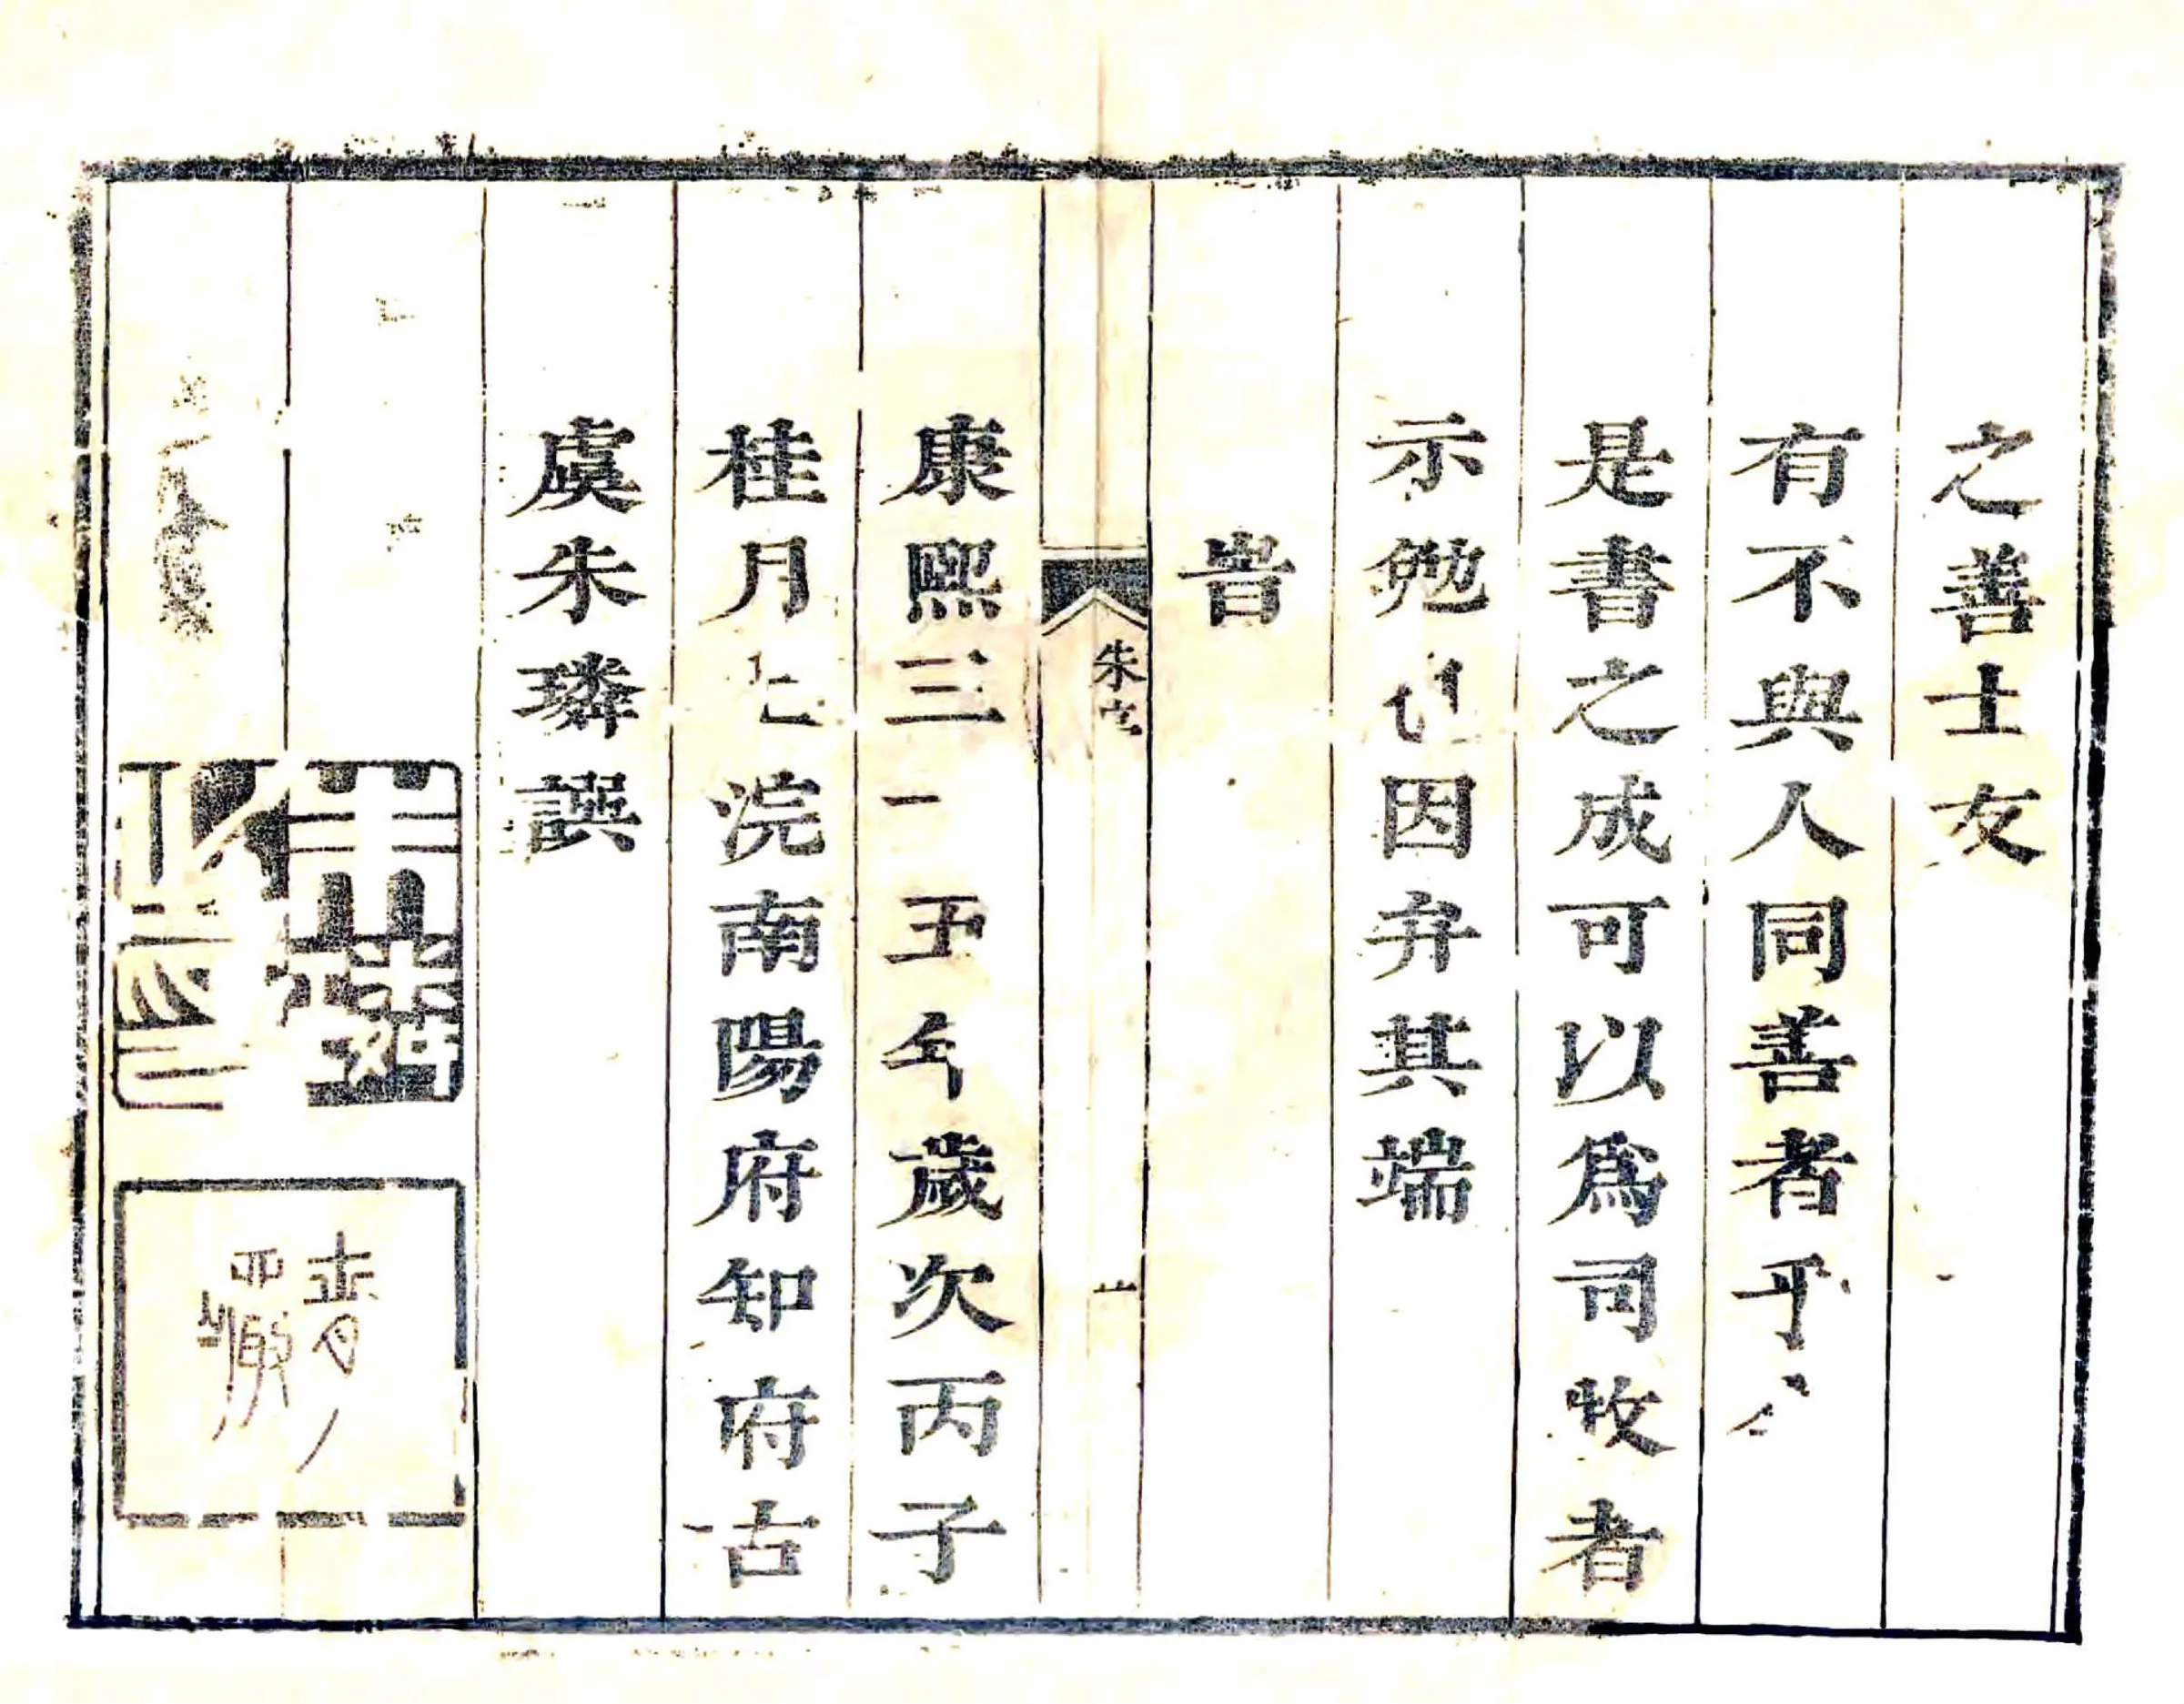 之善士友
有不與人同善者乎
是書之成可以爲司牧者
示勉也因弁其端
旹
朱序
康熙三十五年歲次丙子
桂月浣南陽府知府古
虞朱璘譔